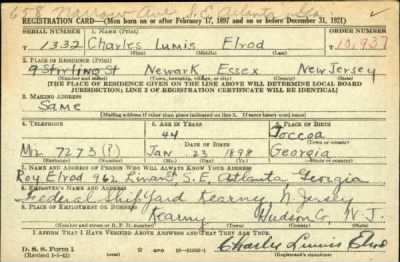 REGISTRATION CARD—(Men born on or after February 17, 1897 and on or before December 31, 1921)
SERIAL NUMBER 1. NAME (Print) ORDER NUMBER
T 1332 Charles Lumis Elrod 10,937
(First) (Middle) (Last)
2. PLACE OF RESIDENCE (Print)
9 Stirling St Newark Essex New Jersey
(Number and street) (Town, township, village, or city) (County) (State)
[THE PLACE OF RESIDENCE GIVEN ON THE LINE ABOVE WILL DETERMINE LOCAL BOARD
JURISDICTION; LINE 2 OF REGISTRATION CERTIFICATE WILL BE IDENTICAL]
3. MAILING ADDRESS
Same
(Mailing address if other than place indicated on line 2. If same insert word same)
4. TELEPHONE 5. AGE IN YEARS 6. PLACE OF BIRTH
44 Toccoa
DATE OF BIRTH
7273 Jan 23 1898 Georgia
(Exchange) (Number) (Mo.) (Day) (Yr.) (State or country)
7. NAME AND ADDRESS OF PERSON WHO WILL ALWAYS KNOW YOUR ADDRESS
Roy Elrod 962 S.E. Atlanta, Georgia
8. EMPLOYER'S NAME AND ADDRESS
Federal Shipyard Kearney N. Jersey
9. PLACE OF EMPLOYMENT OR BUSINESS
Kearny Hudson Co. N. J.
(Number and street or R. F. D. number) (Town) (County) (State)
I AFFIRM THAT I HAVE VERIFIED ABOVE ANSWERS AND THAT THEY ARE TRUE.
D. S. S. Form 1
(Revised 1-1-42) Charles Lumis Elrod
(Registrant's signature)